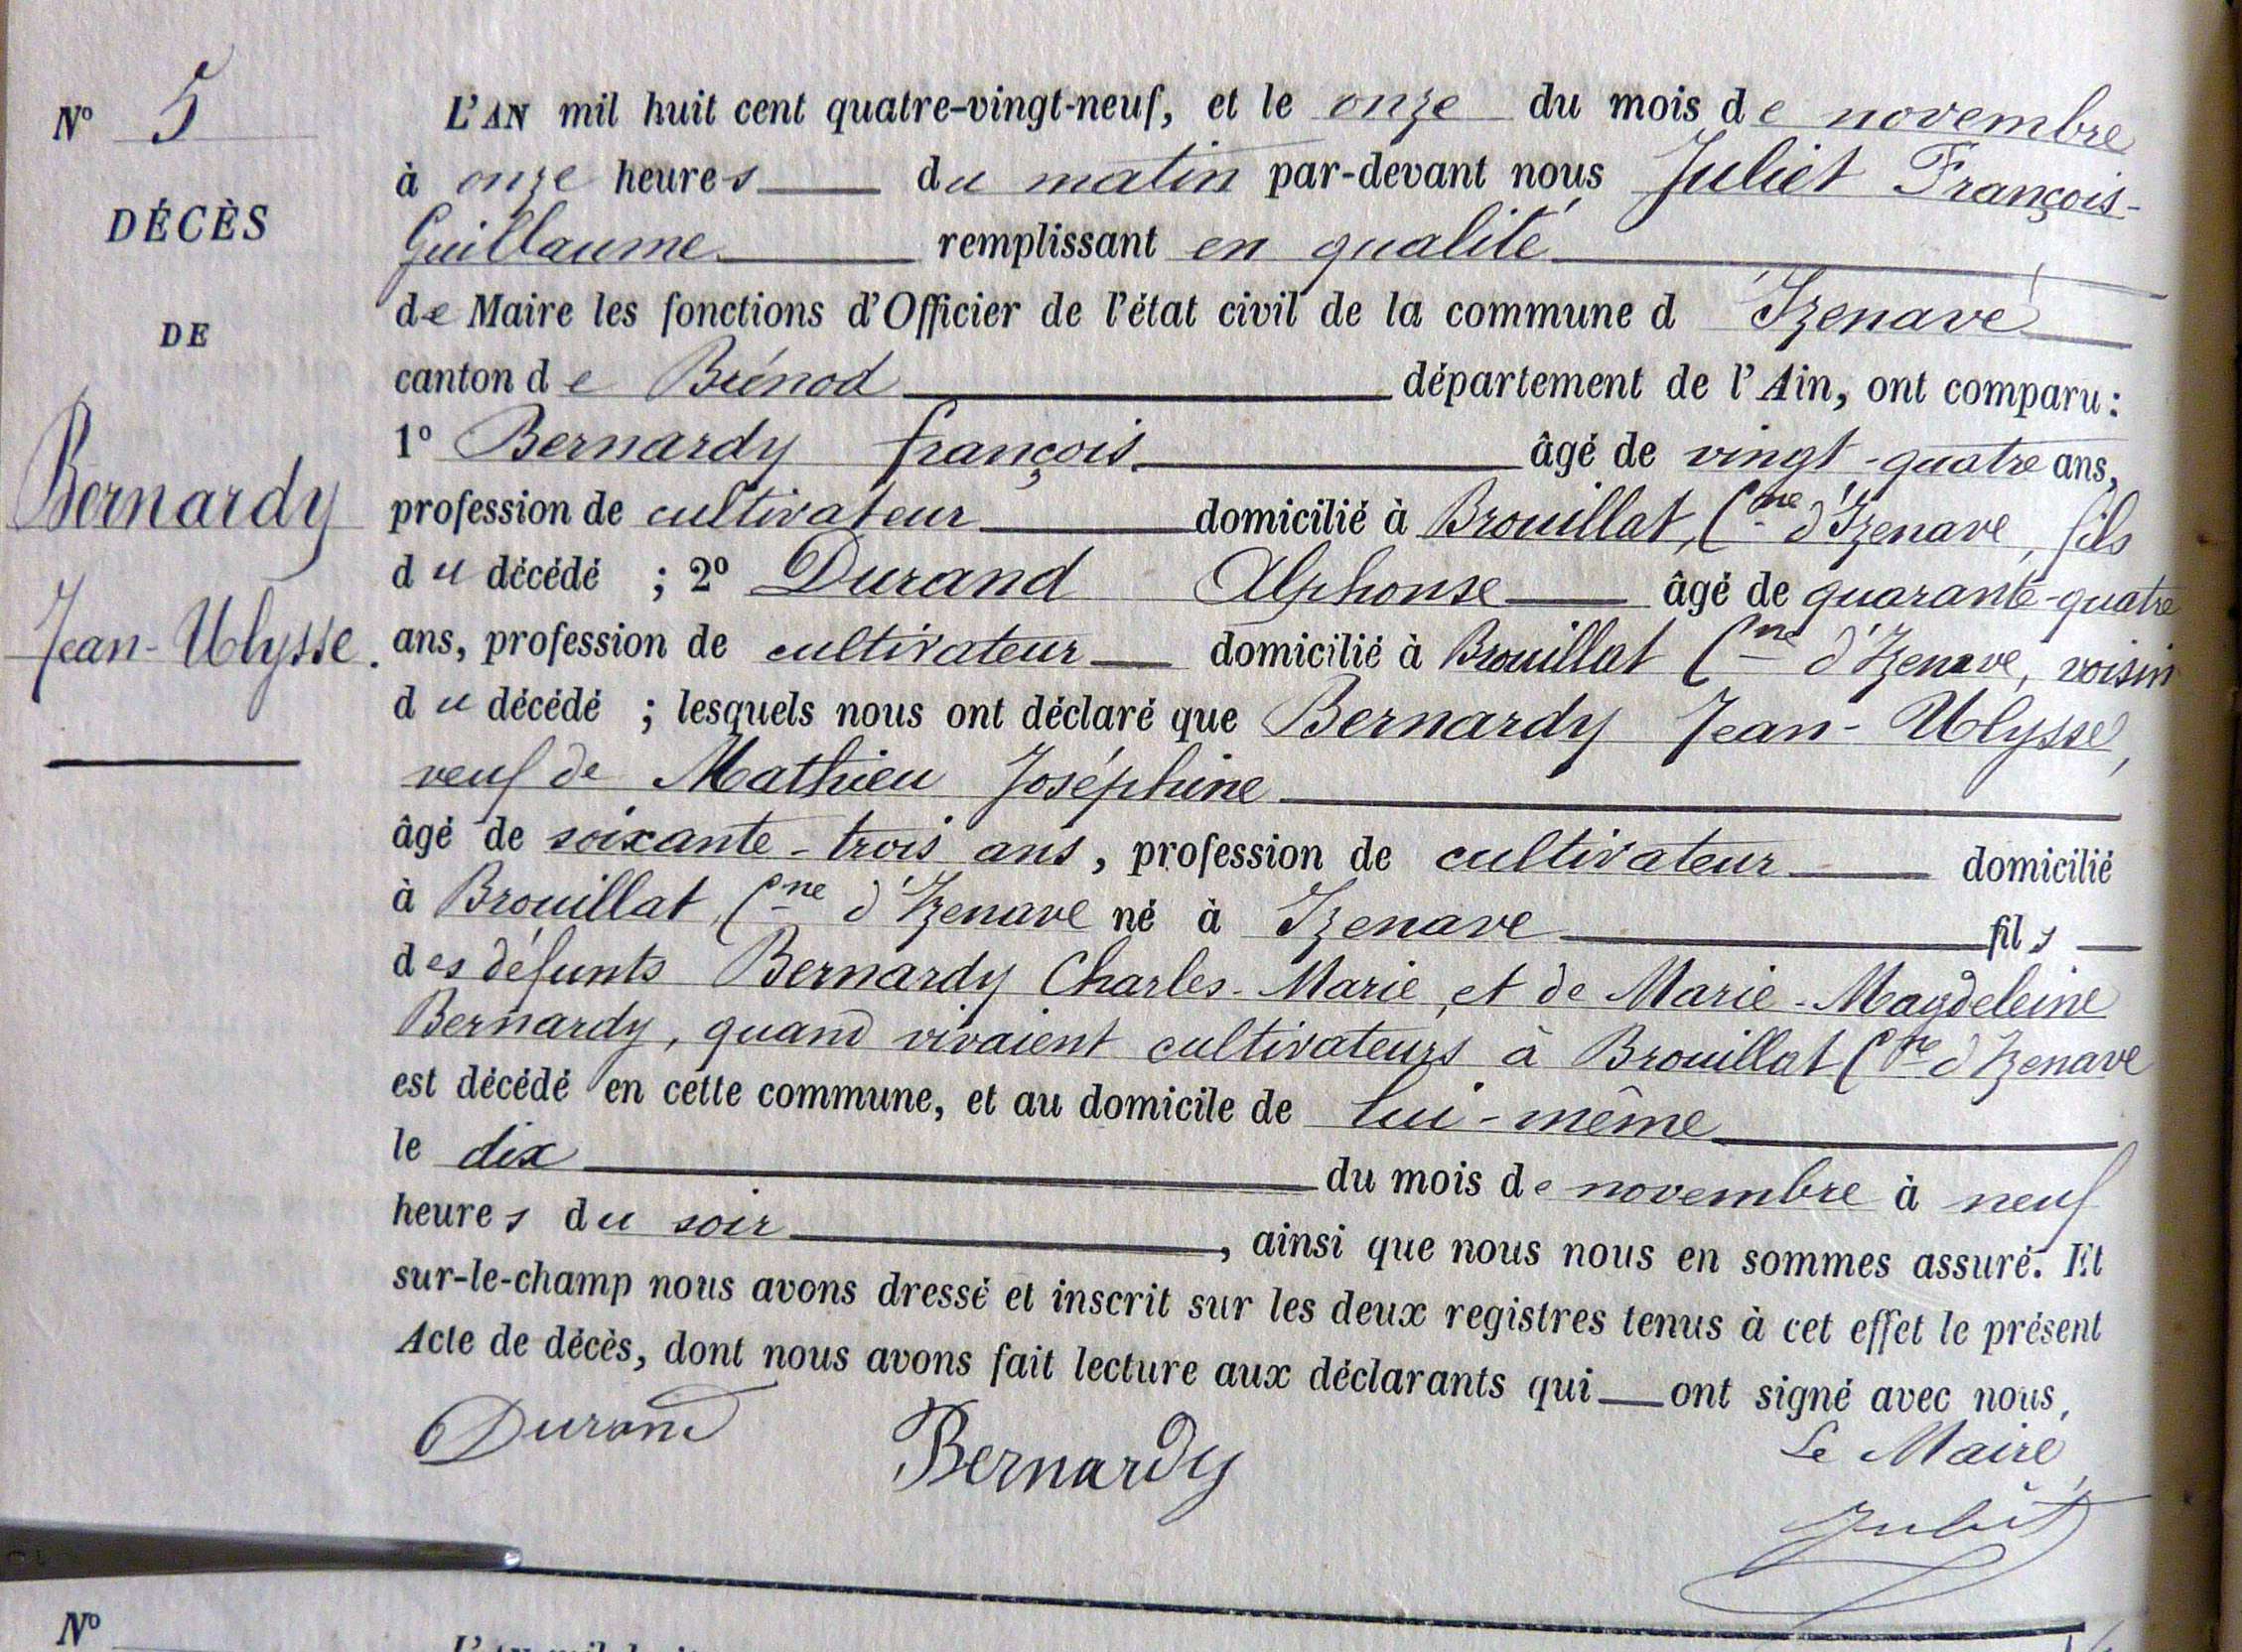 N° 5
DÉCÈS
DE
Bernardy
Jean-Ulysse.
L'AN mil huit cent quatre-vingt-neuf, et le onze du mois de novembre
à onze heures du matin par-devant nous Juliet François-
Guillaume remplissant en qualité
de Maire les fonctions d'Officier de l'état civil de la commune d Izenave
canton de Brénod département de l'Ain, ont comparu :
1° Bernardy françois âgé de vingt-quatre ans,
profession de cultivateur domicilié à Brouillat, Cne d'Izenave, fils
du décédé ; 2° Durand Alphonse âgé de quarante-quatre
ans, profession de cultivateur domicilié à Brouillat Cne d'Izenave, voisin
du décédé ; lesquels nous ont déclaré que Bernardy Jean-Ulysse,
veuf de Mathieu Joséphine
âgé de soixante-trois ans, profession de cultivateur domicilié
à Brouillat, Cne d'Izenave né à Izenave fils
des défunts Bernardy Charles-Marie, et de Marie-Magdeleine
Bernardy, quand vivaient cultivateurs à Brouillat Cne d'Izenave
est décédé en cette commune, et au domicile de lui-même
le dix du mois de novembre à neuf
heures du soir, ainsi que nous nous en sommes assuré. Et
sur-le-champ nous avons dressé et inscrit sur les deux registres tenus à cet effet le présent
Acte de décès, dont nous avons fait lecture aux déclarants qui ont signé avec nous,
Durand Bernardy Le Maire,
Juliet
N°